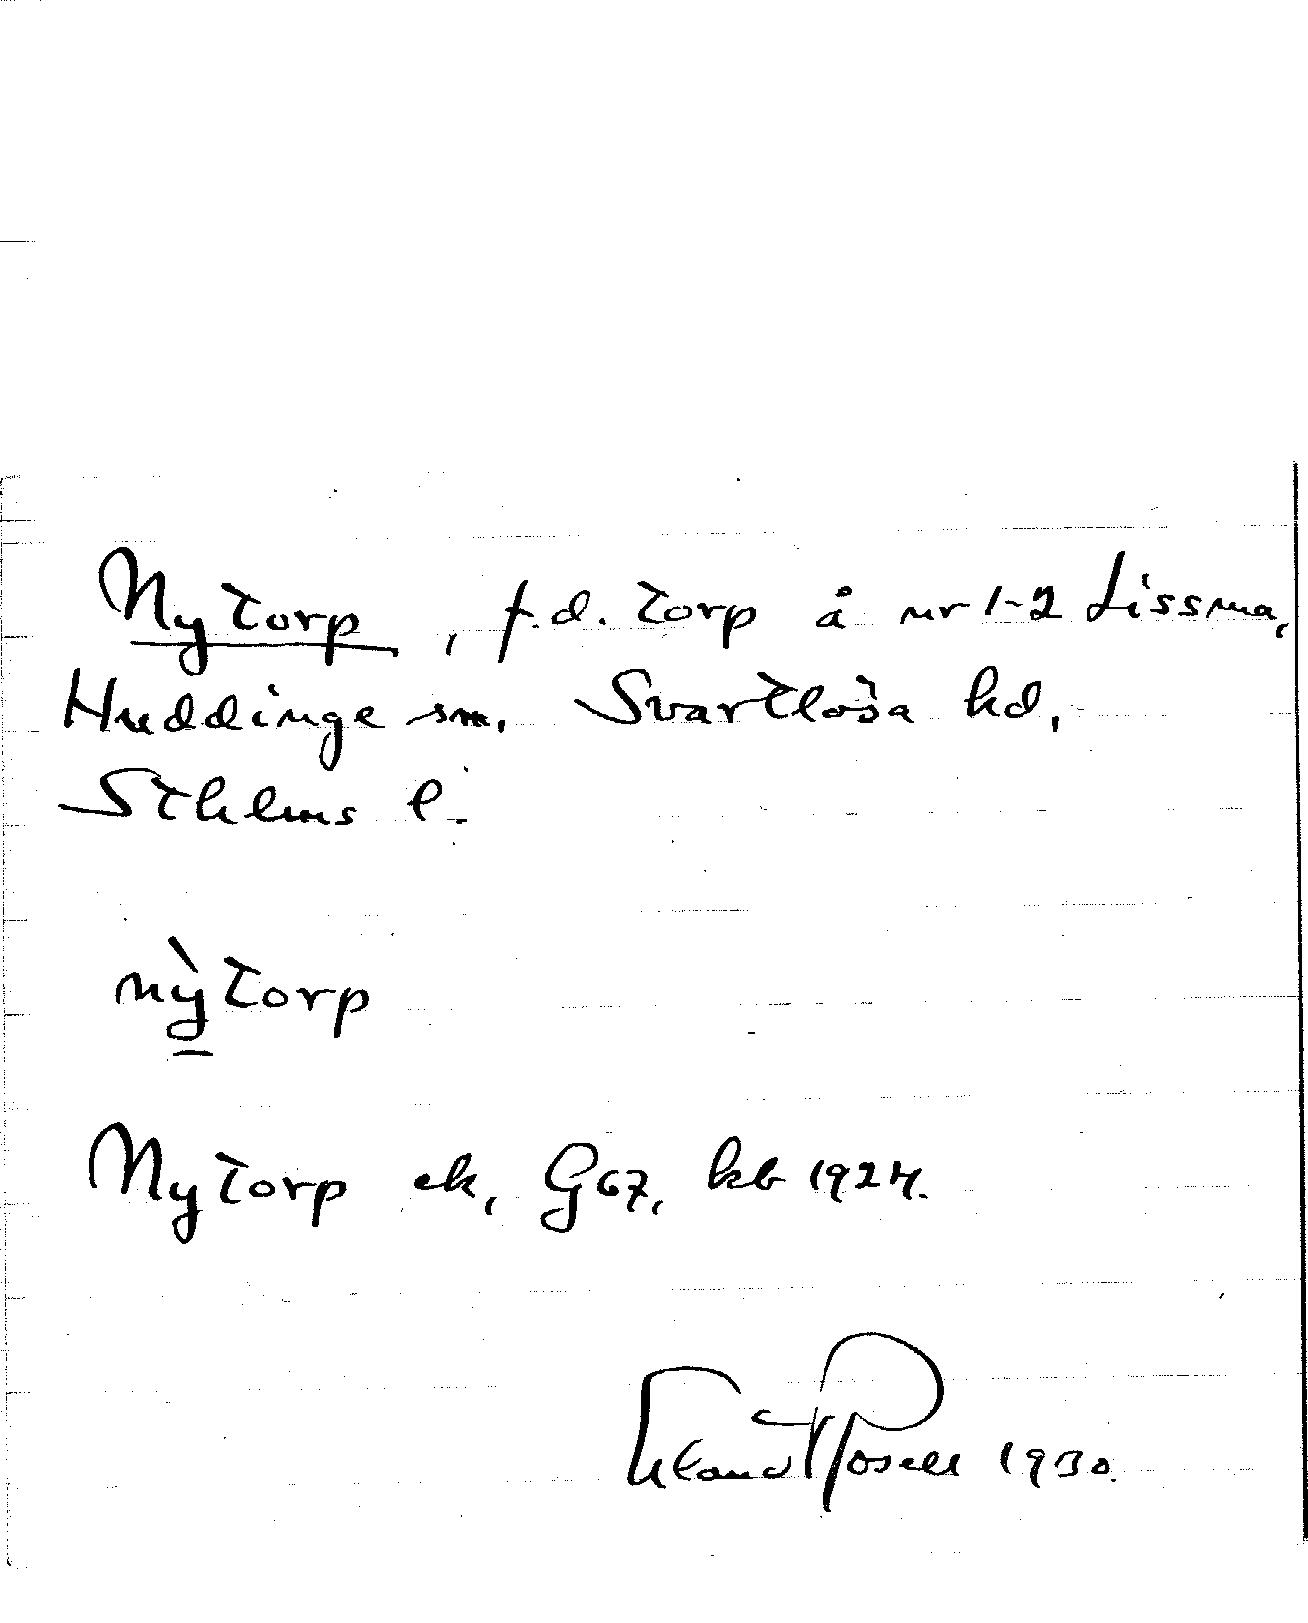 Nytorp, f.d. torp å nr 1-2 Lissma,
Huddinge sn. Svartlösa hd,
Sthlms l.
nỳtorp
Nytorp ek, G67, kb 1924.
Erland Rosell 1930.